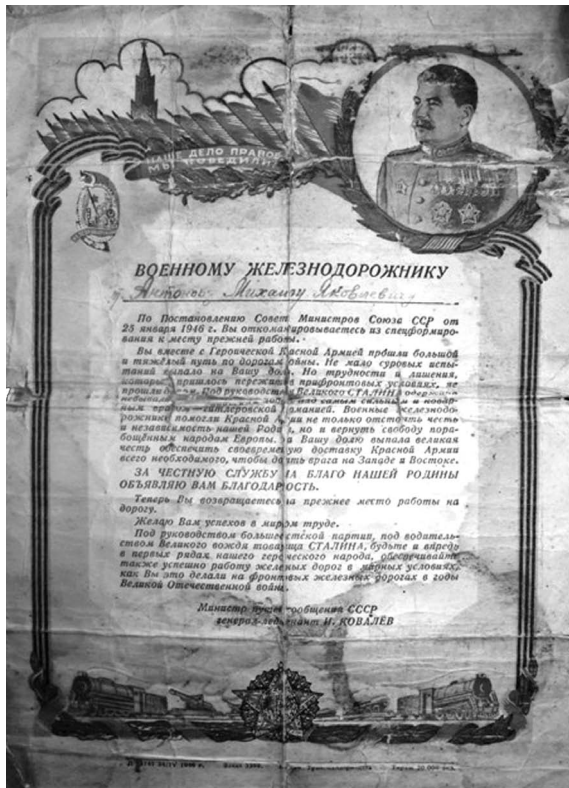 НАШЕ ДЕЛО ПРАВОЕ
МЫ ПОБЕДИЛИ
ВОЕННОМУ ЖЕЛЕЗНОДОРОЖНИКУ
Антонову Михаилу Яковлевичу
По Постановлению Совета Министров Союза ССР от
25 января 1946 г. Вы откомандировываетесь из спецформиро-
вания к месту прежней работы.
Вы вместе с Героической Красной Армией прошли большой
и тяжёлый путь по дорогам войны. Не мало суровых испы-
таний выпало на Вашу долю. Но трудности и лишения,
которые пришлось пережить в прифронтовых условиях, не
прошли даром. Под руководством Великого СТАЛИНА одержана
над самым сильным и коварным
врагом — гитлеровской Германией. Военные железнодо-
рожники помогли Красной Армии не только отстоять честь
и независимость нашей Родины, но и вернуть свободу пора-
бощённым народам Европы. На Вашу долю выпала великая
честь обеспечить своевременную доставку Красной Армии
всего необходимого, чтобы бить врага на Западе и Востоке.
ЗА ЧЕСТНУЮ СЛУЖБУ НА БЛАГО НАШЕЙ РОДИНЫ
ОБЪЯВЛЯЮ ВАМ БЛАГОДАРНОСТЬ.
Теперь Вы возвращаетесь на прежнее место работы на
дорогу.
Желаю Вам успехов в мирном труде.
Под руководством большевистской партии, под водитель-
ством Великого вождя товарища СТАЛИНА, будьте и впредь
в первых рядах нашего героического народа, обеспечивайте
также успешно работу железных дорог в мирных условиях,
как Вы это делали на фронтовых железных дорогах в годы
Великой Отечественной войны.
Министр путей сообщения СССР
генерал-лейтенант И. КОВАЛЁВ